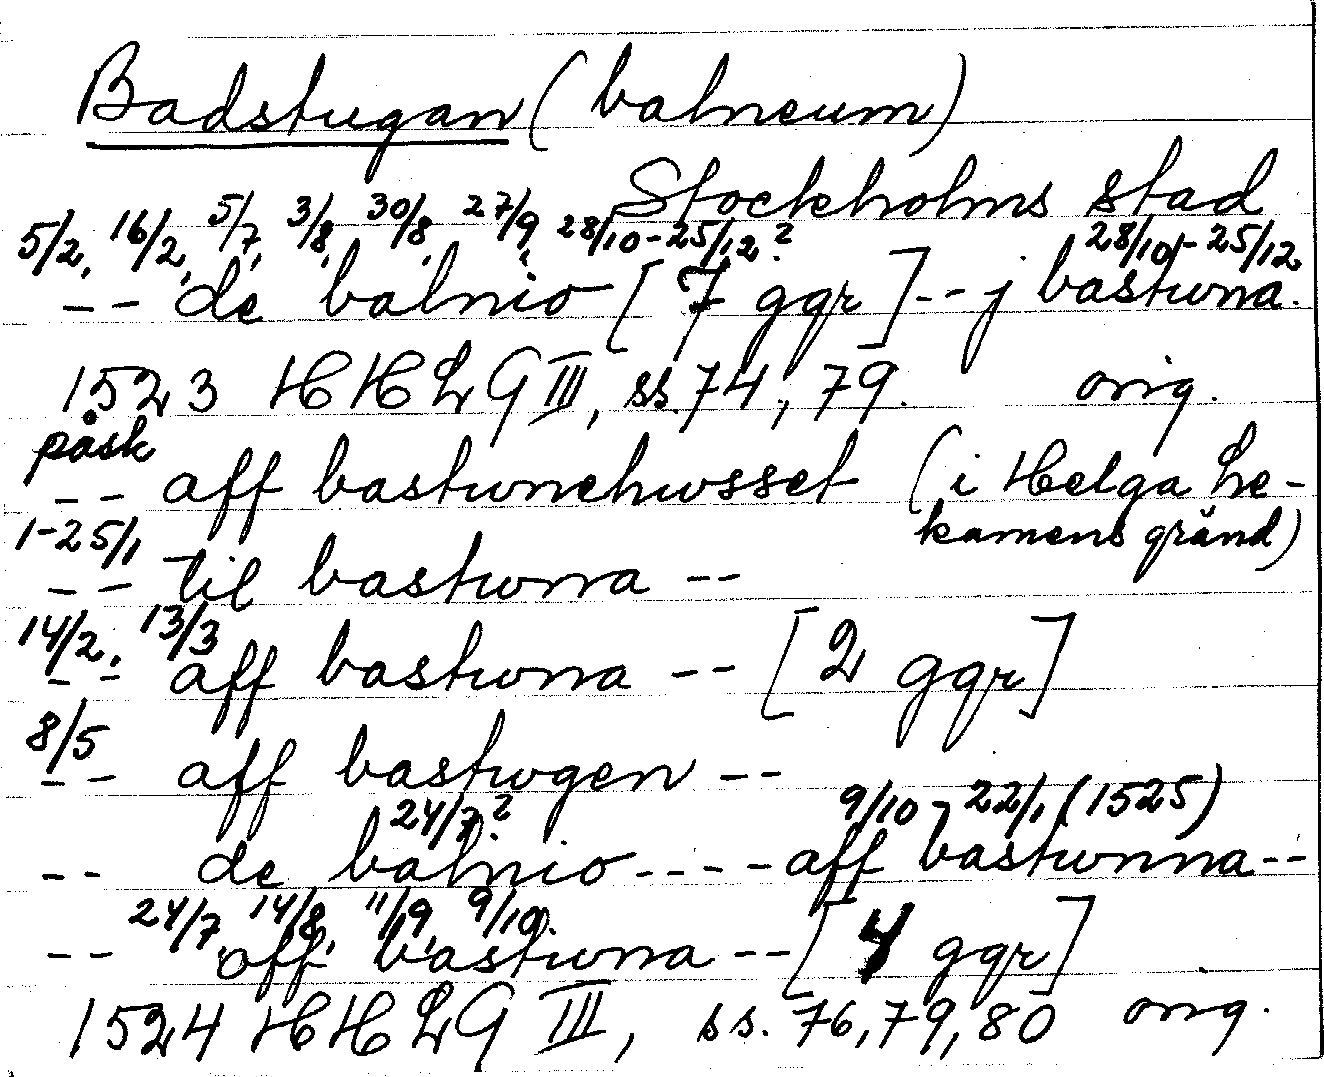 Badstugan (balneum)
Stockholms stad
5/2, 16/2, 5/7, 3/8, 30/8, 27/9, 28/10-25/12? 28/10-25/12
-- de balnio [7 ggr] -- j bastwna.
1523 HHLG III, ss. 74, 79. orig.
påsk
-- aff bastwnehwsset (i Helga le-
kamens gränd)
1-25/1
-- til bastwna --
14/2, 13/3
-- aff bastwna -- [2 ggr]
8/5
-- aff bastwgen --
24/7? 9/10 - 22/1 (1525)
-- de balnio ---- aff bastwnna --
24/7, 14/8, 11/9, 9/10.
-- aff bastwna -- [4 ggr]
1524 HHLG III, ss. 76, 79, 80 orig.